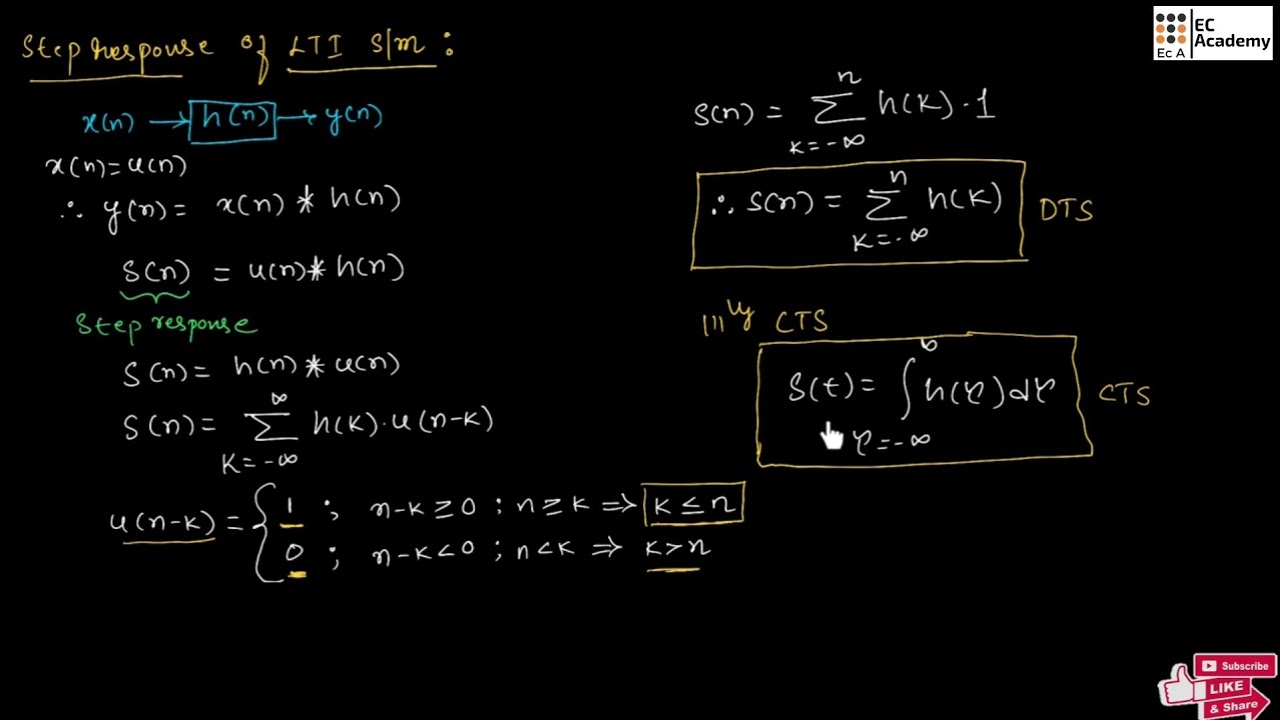 Step response of LTI S/m :
x(n) → h(n) → y(n)
x(n) = u(n)
∴ y(n) = x(n) * h(n)
S(n) = u(n) * h(n)
Step response
S(n) = h(n) * u(n)
S(n) = ∞ Σ K=-∞ h(K) · u(n-K)
u(n-K) = { 1 ; n-K ≥ 0 ; n ≥ K ⇒ K ≤ n
0 ; n-K < 0 ; n < K ⇒ K > n
S(n) = n Σ K=-∞ h(K) · 1
∴ S(n) = n Σ K=-∞ h(K) DTS
|||ly CTS
S(t) = ∫ τ=-∞ h(τ) dτ CTS
EC
Academy
Ec A
Subscribe
LIKE
& Share